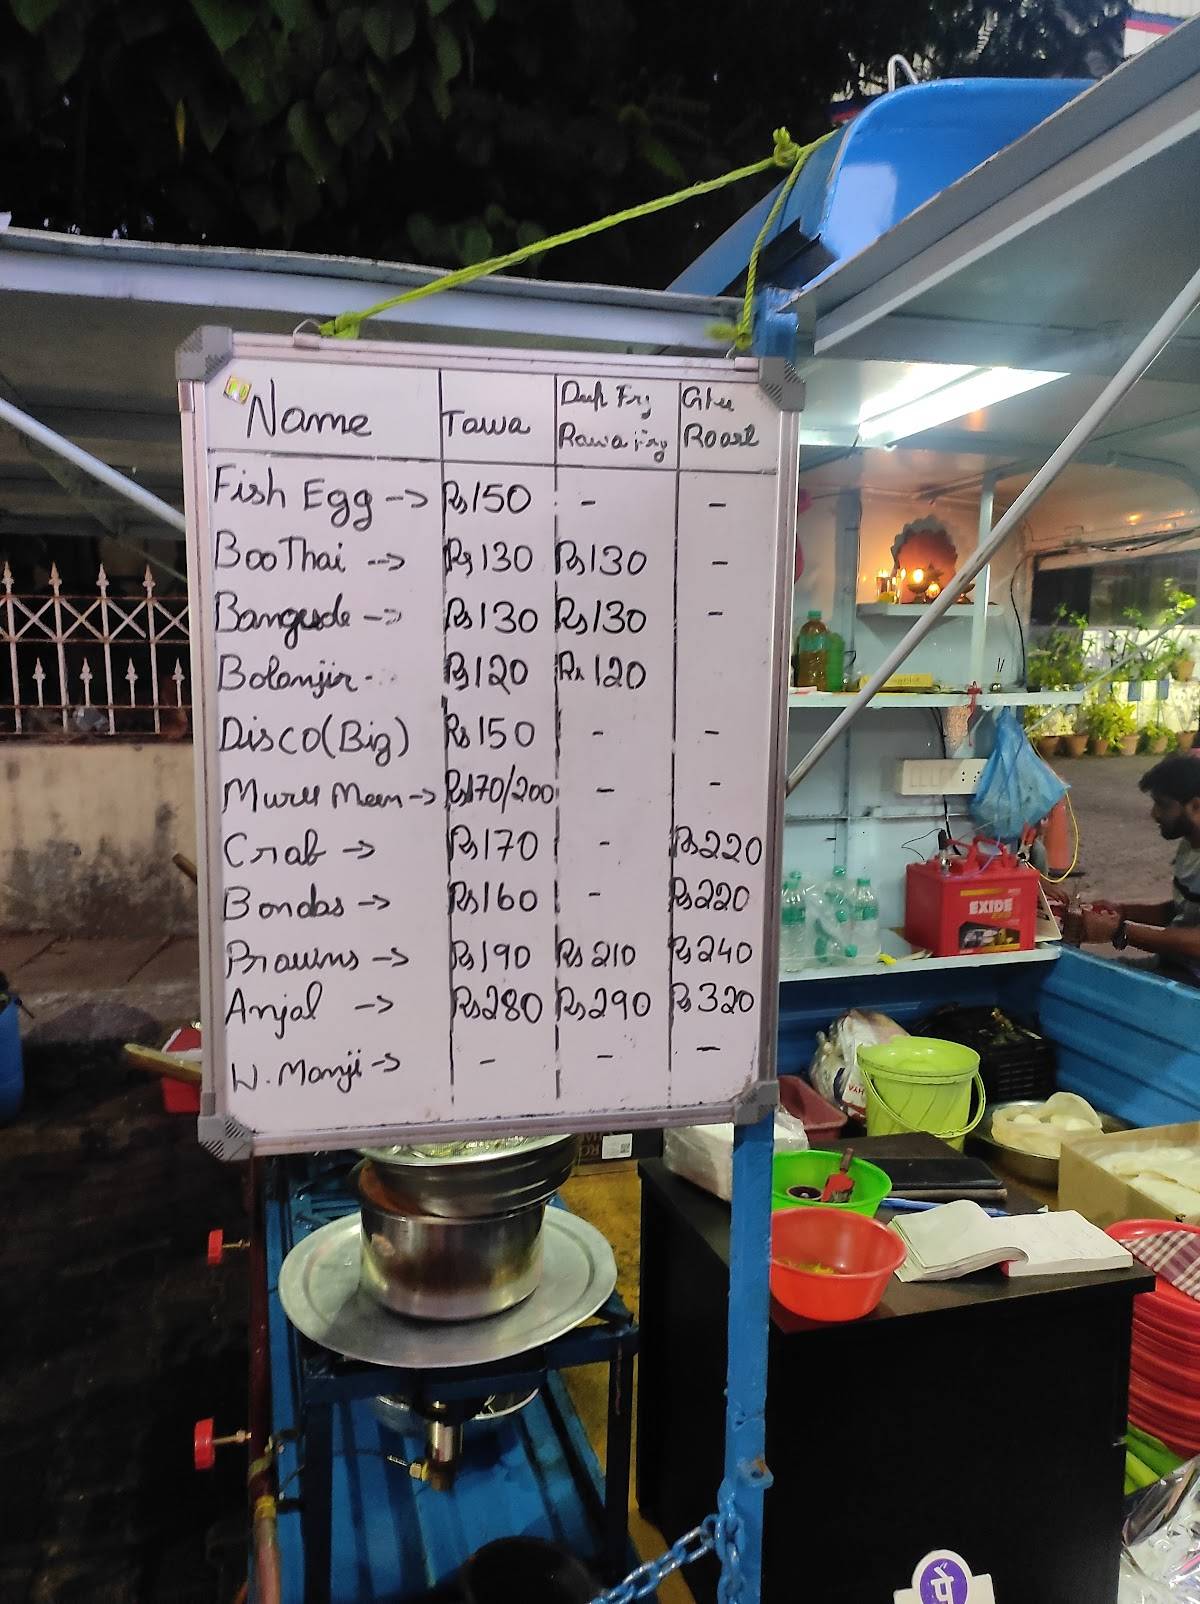 Name Tawa Deep Fry Rawa Fry Ghee Roast
Fish Egg --> Rs150 - -
BooThai --> Rs130 Rs130 -
Bangude --> Rs130 Rs130 -
Bolanjir - Rs120 Rs 120
Disco(Big) Rs150 - -
Muru Meen --> Rs170/200 - -
Crab -> Rs170 - Rs220
Bondas -> Rs160 - Rs220
Prawns -> Rs190 Rs 210 Rs240
Anjal -> Rs280 Rs290 Rs320
W. Manji -> - - -
EXIDE
पे